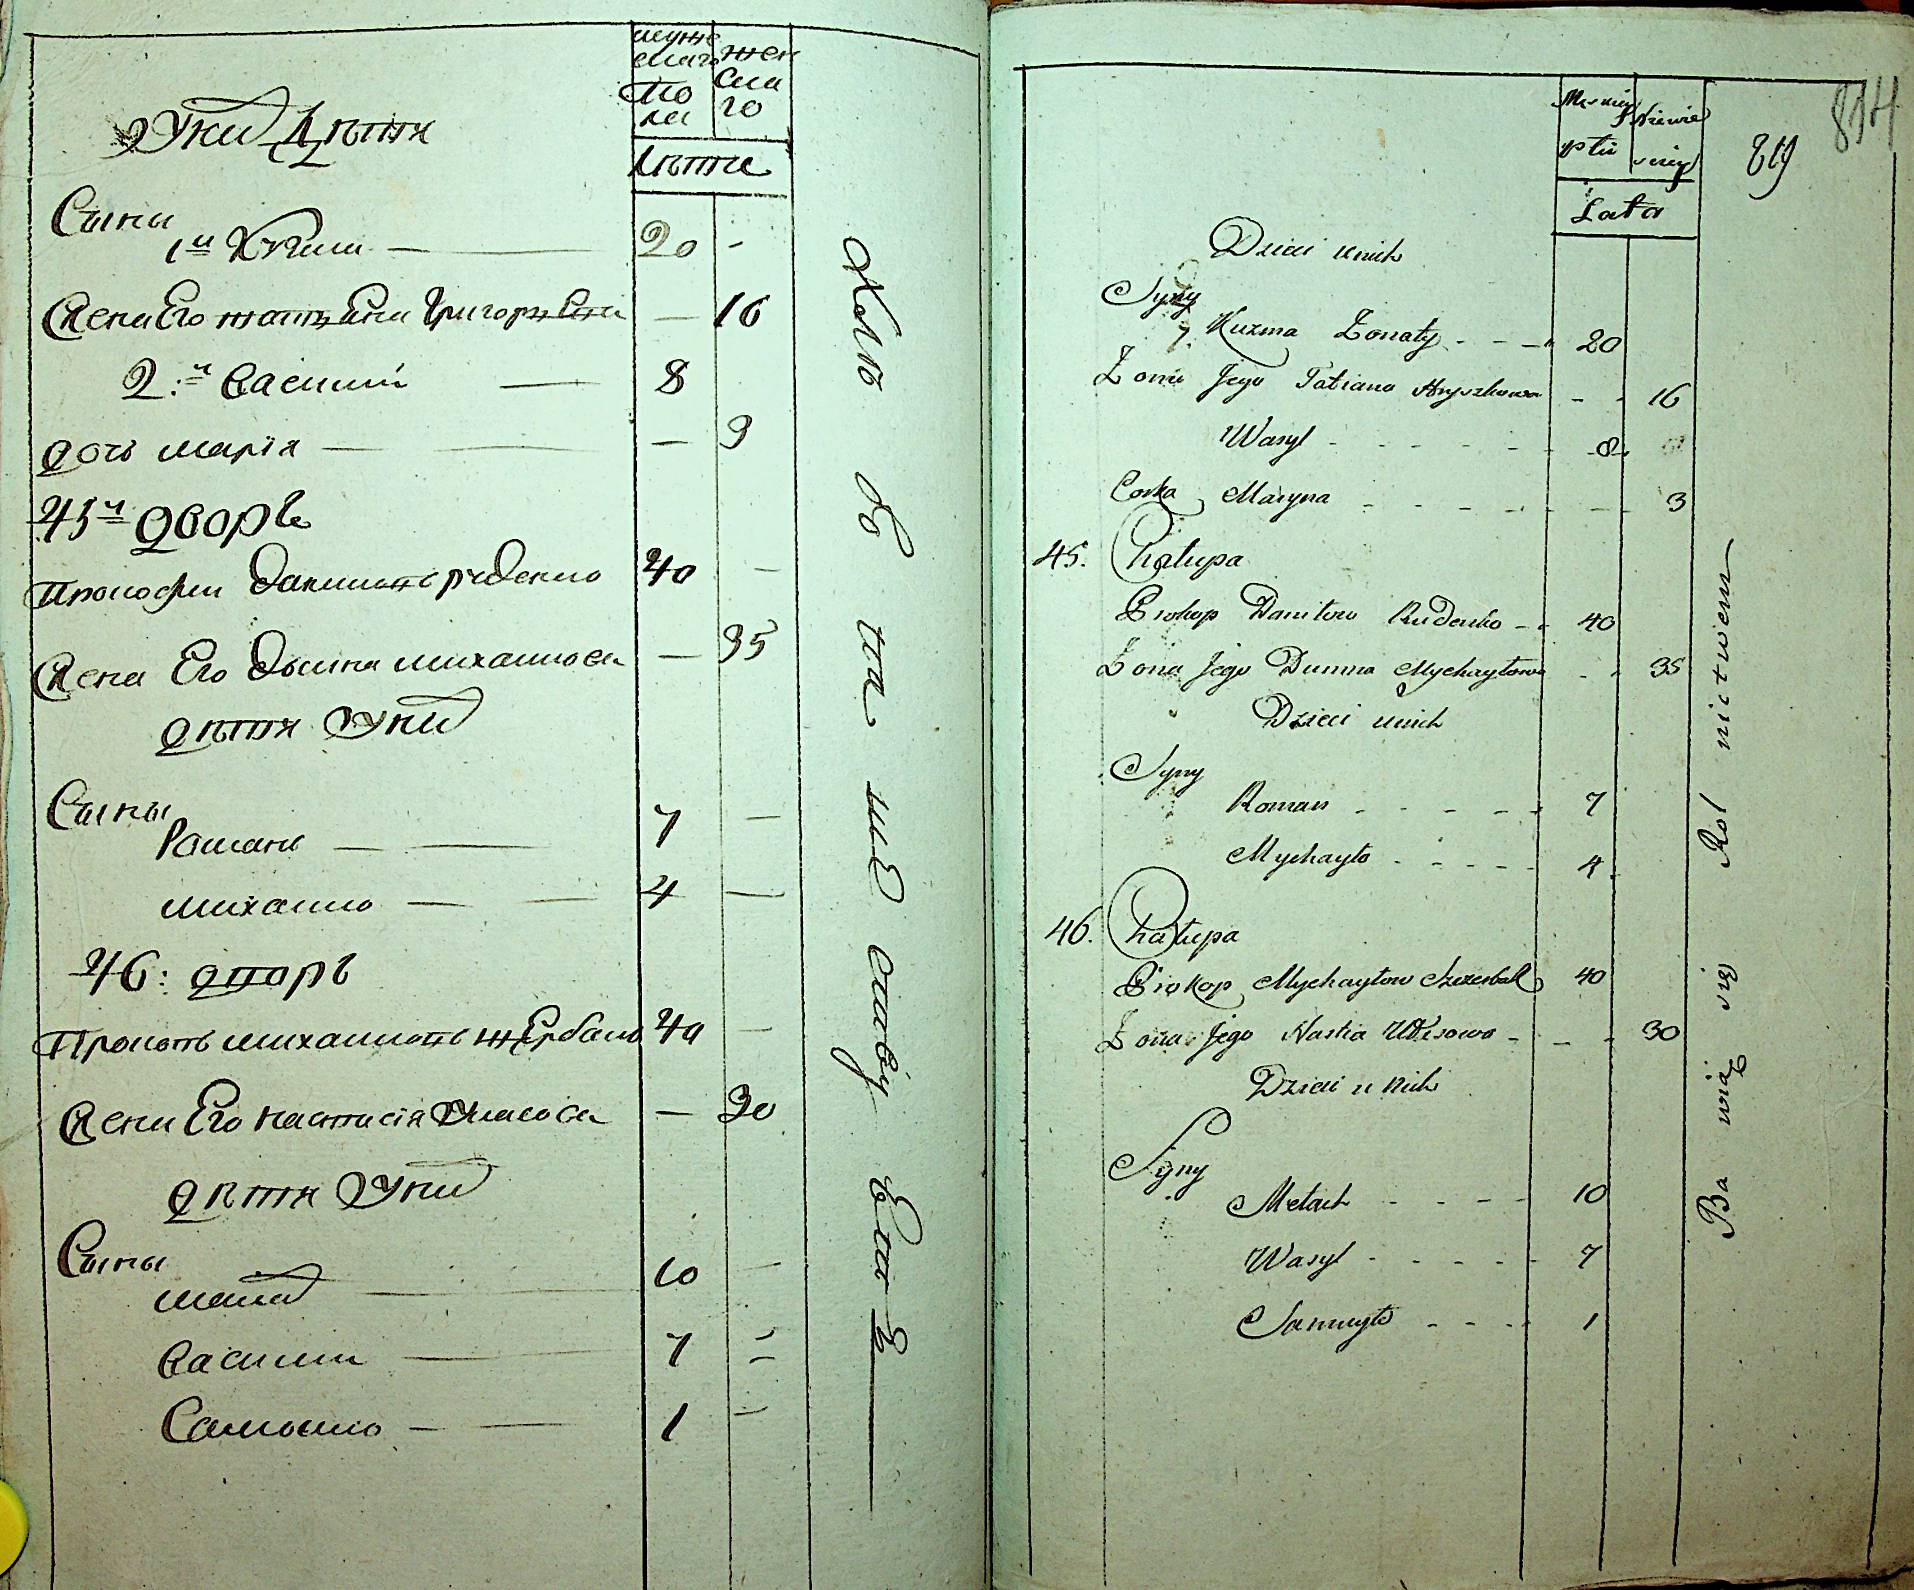 мужескаго пола
женскаго
лѣта
У Них Дѣтя
Сыны
1й Кузма 20 -
Жена Его Татьяна Григорьева — 16
2:й Василий — 8
Дочь Мария — — 9
45й Дворъ
Прокофий Даниловъ Руденко 40 —
Жена Его Домна Михайлова — 35
Дѣтя У Них
Сыны
Романъ — 7 —
Михайло — 4 —
46: Дворъ
Прокопъ Михайловъ Щербакъ 40 —
Жена Его Настасія Власова — 30
Дѣтя У Них
Сыны
10 —
Василий — 7
Самойло — 1
Хлѣбопашеством
Męskiej płci
Niewieściej
Lata
819
814
Dzieci u nich
Syny
Kuzma Żonaty 20
Żona Jego Tatiana Hryszkowa 16
Wasyl 8
Corka Maryna 3
45. Chałupa
Prokop Daniłow Rudenko 40
Żona Jego Dumna Mychayłowa 35
Dzieci u nich
Syny
Roman 7
Mychayło 4
46. Chałupa
Prokop Mychayłow Szczerbak 40
Żona Jego Nastia Własowa 30
Dzieci u nich
Syny
Małach 10
Wasyl 7
Samuyło 1
Bawią się Rolnictwem